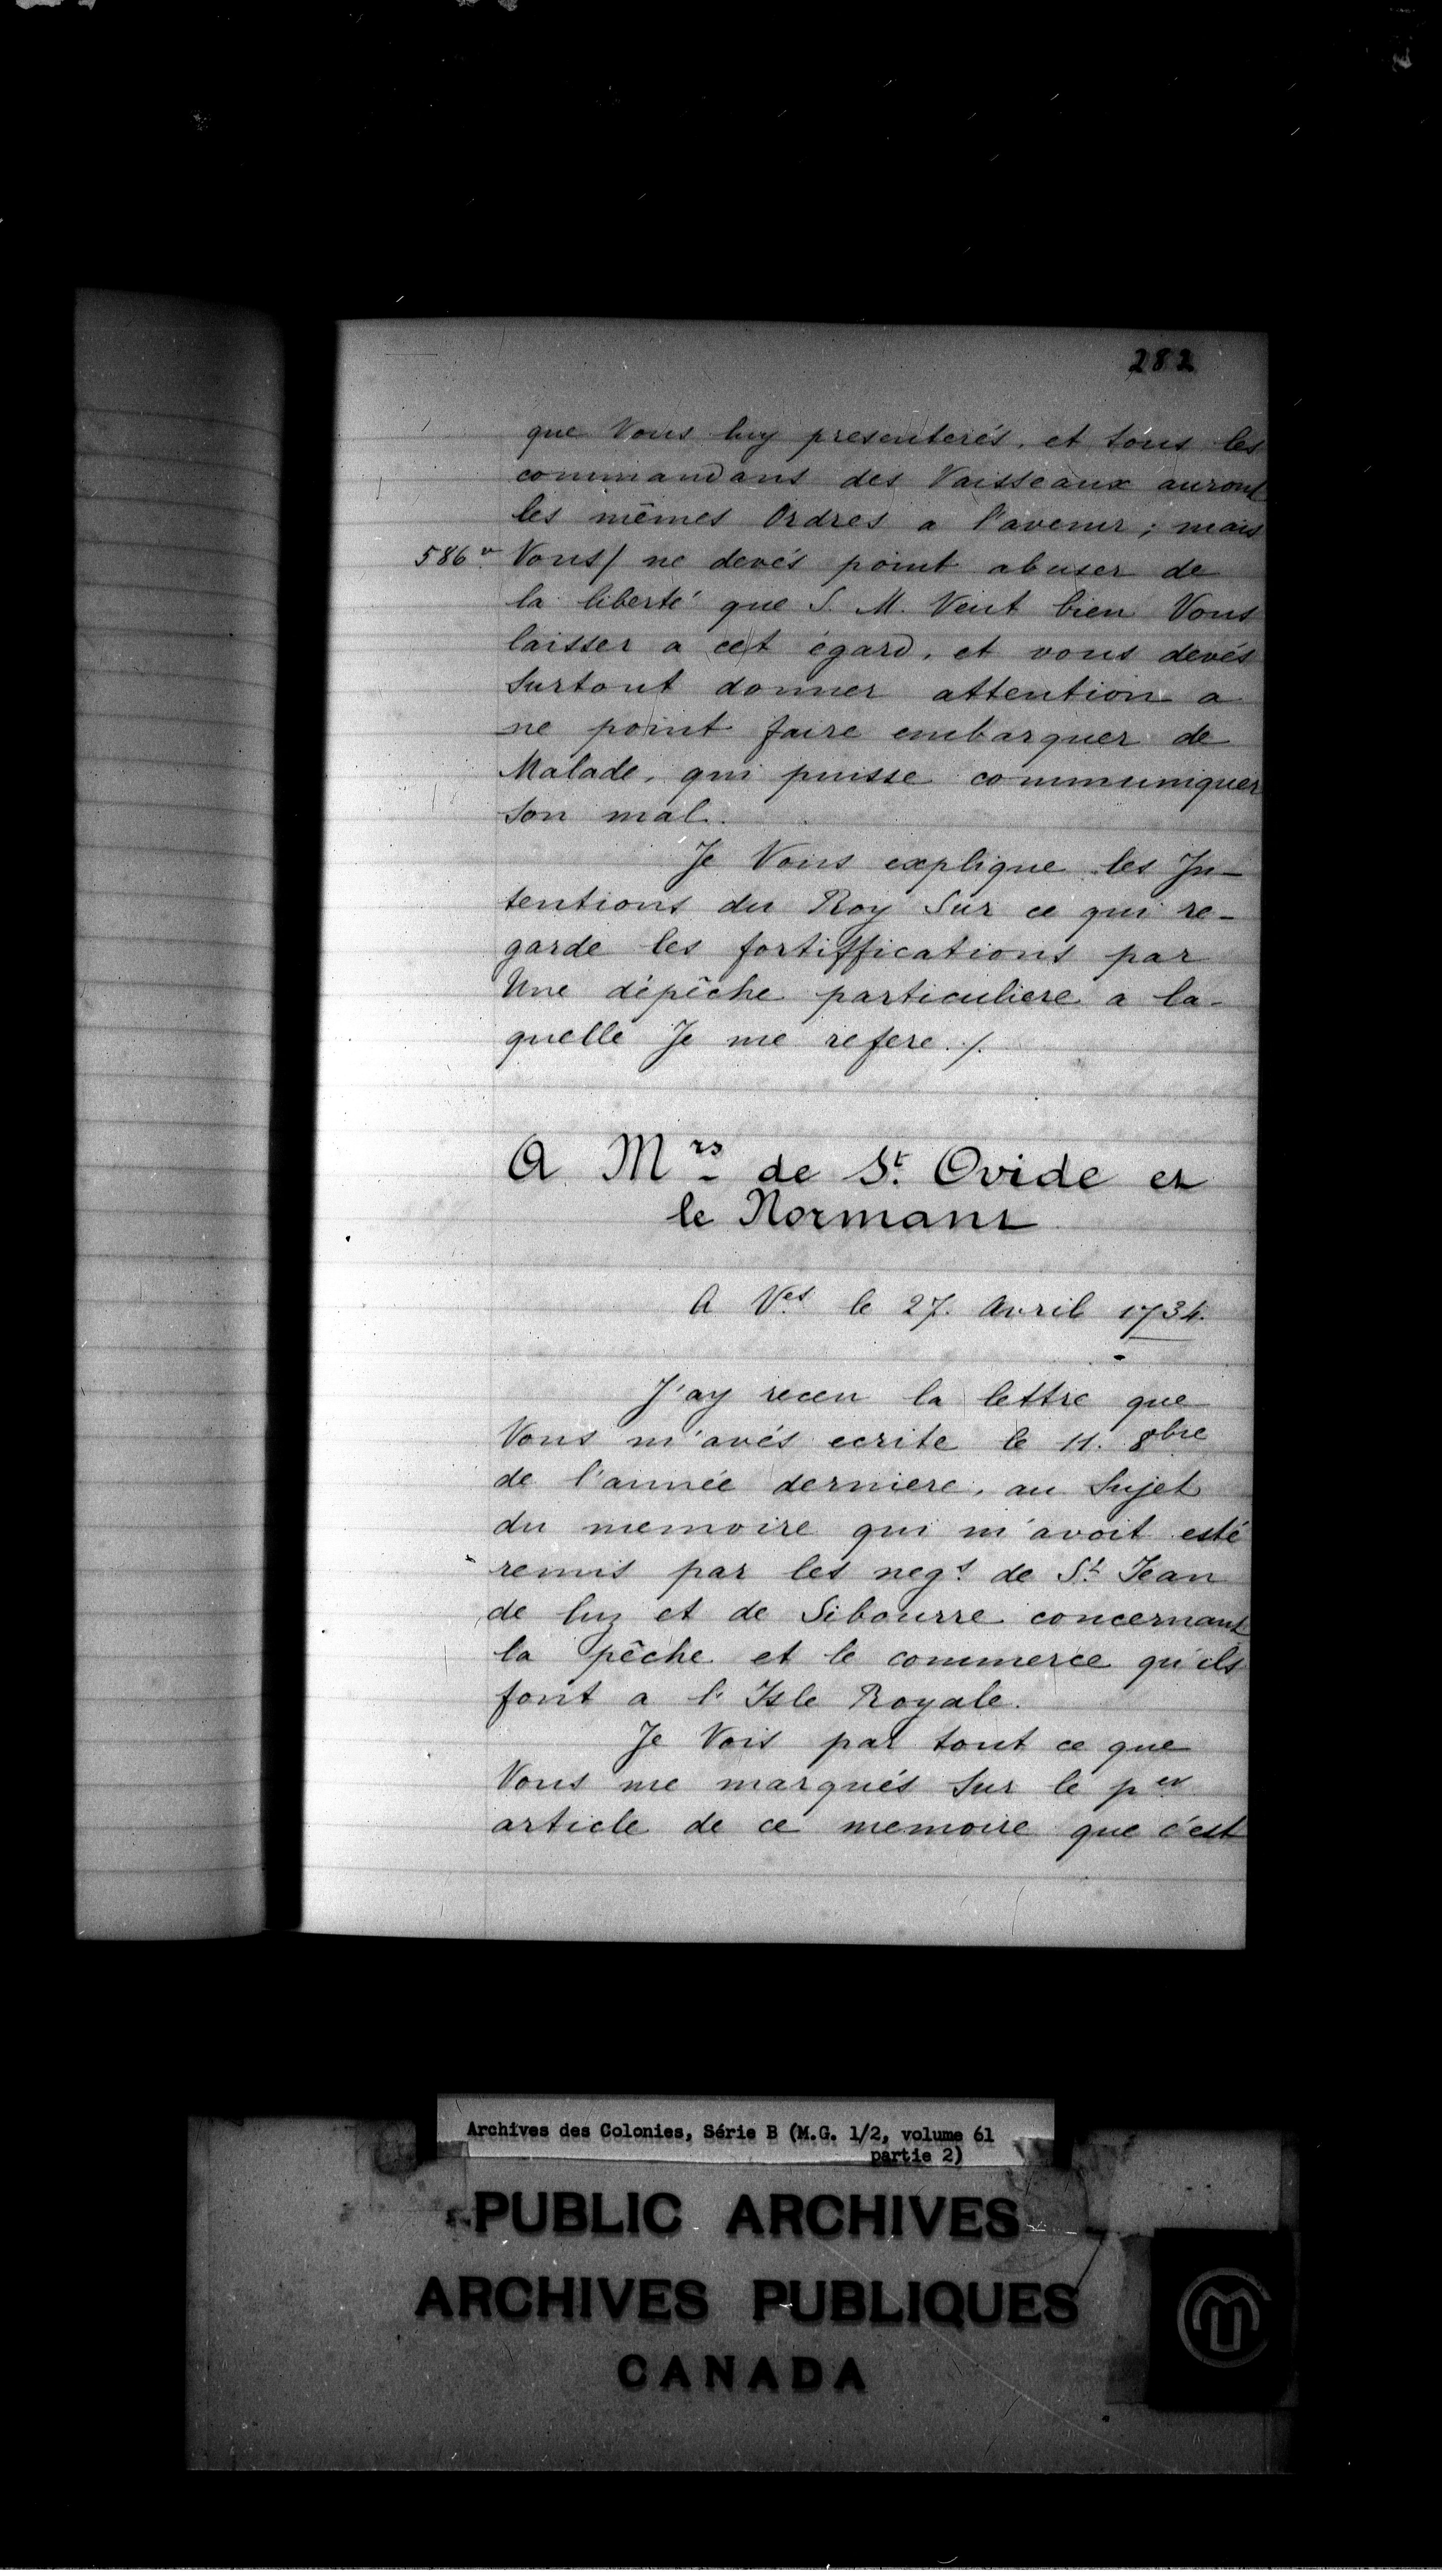 282
que Vous luy presenterés, et tous les
commandans des Vaisseaux auront
les mêmes Ordres a l'avenir ; mais
586 v. Vous/ ne devés point abuser de
la liberté que S. M. Veut bien Vous
laisser a cet égard, et vous devés
Surtout donner attention a
ne point faire embarquer de
Malade, qui puisse communiquer
Son mal.
Je Vous explique les In-
tentions du Roy Sur ce qui re-
garde les fortiffications par
Une dépêche particuliere a la-
quelle Je me refere ./.
A Mrs de St. Ovide et
le Normant
A Ves le 27. Avril 1734.
J'ay receu la lettre que
Vous m'avés ecrite le 11. 8bre
de l'année derniere, au Sujet
du memoire qui m'avoit esté
remis par les negs. de St. Jean
de luz et de Sibourre concernant
la pêche et le commerce qu'ils
font a l'Isle Royale.
Je Vois par tout ce que
Vous me marqués Sur le per
article de ce memoire que c'est
Archives des Colonies, Série B (M.G. 1/2, volume 61
partie 2)
PUBLIC ARCHIVES
ARCHIVES PUBLIQUES
CANADA